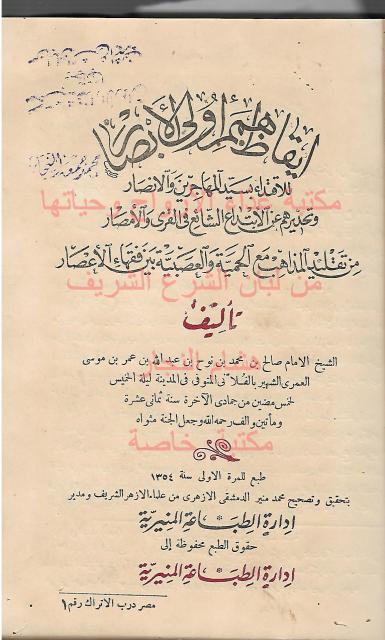 ايقاظ همم أولى الأبصار
للاقتداء بسيد المهاجرين والانصار
مكتبة غذاء الأرواح وحياتها
وتحذيرهم عن الابتداع الشائع في القرى والأمصار
من تقليد المذاهب مع الحمية والعصبية بين فقهاء الأعصار
من لبان الشرع الشريف
تأليف
الشيخ الامام صالح بن محمد بن نوح بن عبد الله بن عمر بن موسى
هيثم النجار
العمرى الشهير بالفلانى المتوفى فى المدينة ليلة الخميس
لخمس مضين من جمادى الآخرة سنة ثمانى عشرة
ومأتين والف رحمه الله وجعل الجنة مثواه
مكتبة خاصة
طبع للمرة الاولى سنة ١٣٥٤
بتحقيق وتصحيح محمد منير الدمشقى الازهرى من علماء الازهر الشريف ومدير
إدارة الطباعة المنيرية
حقوق الطبع محفوظة إلى
إدارة الطباعة المنيرية
مصر درب الاتراك رقم ١